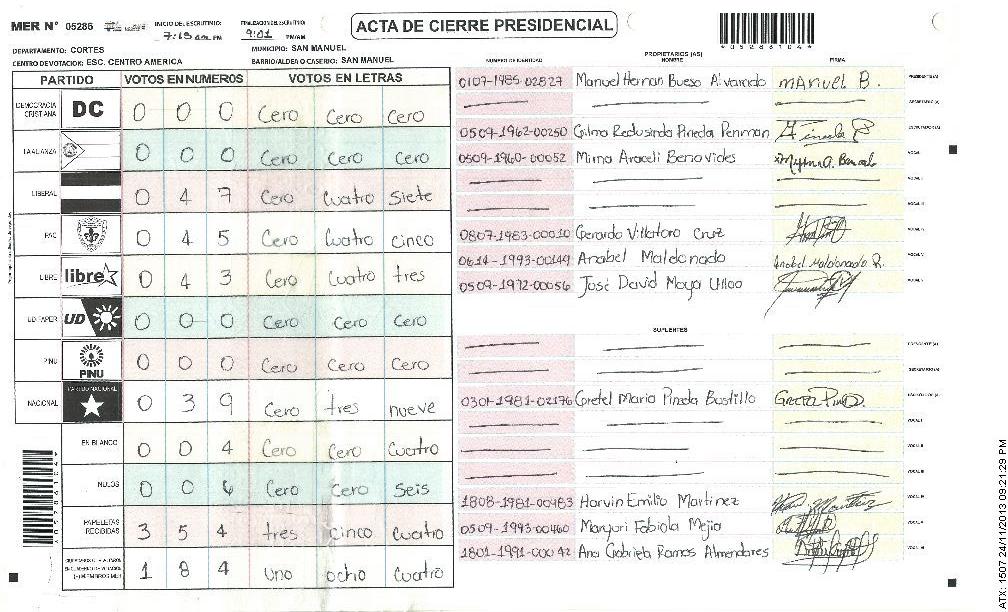 MER N° 05286 INICIO DEL ESCRUTINIO: 7:15 AM PM FINALIZACION DEL ESCRUTINIO: 9:01 PM/AM
ACTA DE CIERRE PRESIDENCIAL
*05286104*
DEPARTAMENTO: CORTES MUNICIPIO: SAN MANUEL
CENTRO DE VOTACION: ESC. CENTRO AMERICA BARRIO/ALDEA O CASERIO: SAN MANUEL
PARTIDO VOTOS EN NUMEROS VOTOS EN LETRAS
DEMOCRACIA CRISTIANA DC 0 0 0 Cero Cero Cero
LA ALIANZA 0 0 0 Cero Cero Cero
LIBERAL 0 4 7 Cero Cuatro Siete
PAC 0 4 5 Cero Cuatro cinco
LIBRE libre 0 4 3 Cero Cuatro tres
UD FAPER UD 0 0 0 Cero Cero Cero
PINU PINU 0 0 0 Cero Cero Cero
NACIONAL PARTIDO NACIONAL 0 3 9 Cero tres nueve
EN BLANCO 0 0 4 Cero Cero Cuatro
NULOS 0 0 6 Cero Cero Seis
PAPELETAS RECIBIDAS 3 5 4 tres cinco Cuatro
1 8 4 uno ocho Cuatro
PROPIETARIOS (AS)
NUMERO DE IDENTIDAD NOMBRE FIRMA
0107-1985-02827 Manuel Hernan Bueso Alvarado Manuel B. PRESIDENTE (A)
SECRETARIO (A)
0509-1962-00250 Gilma Redusinda Pineda Penman ESCRUTADOR (A)
0509-1960-00052 Mirna Araceli Benavides VOCAL I
VOCAL II
VOCAL III
0807-1983-00010 Gerardo Villatoro Cruz VOCAL IV
0614-1993-00149 Anabel Maldonado Anabel Maldonado R. VOCAL V
0509-1972-00056 José David Moya Ulloa
SUPLENTES
PRESIDENTE (A)
SECRETARIO (A)
0301-1981-02176 Gretel Maria Pineda Bustillo ESCRUTADOR (A)
VOCAL I
VOCAL II
VOCAL III
1808-1981-00983 Harvin Emilio Martinez VOCAL IV
0509-1993-00460 Maryori Fabiola Mejia VOCAL V
1801-1991-00042 Ana Gabriela Ramos Almendares VOCAL VI
ATX: 1507 24/11/2013 09:21:29 PM